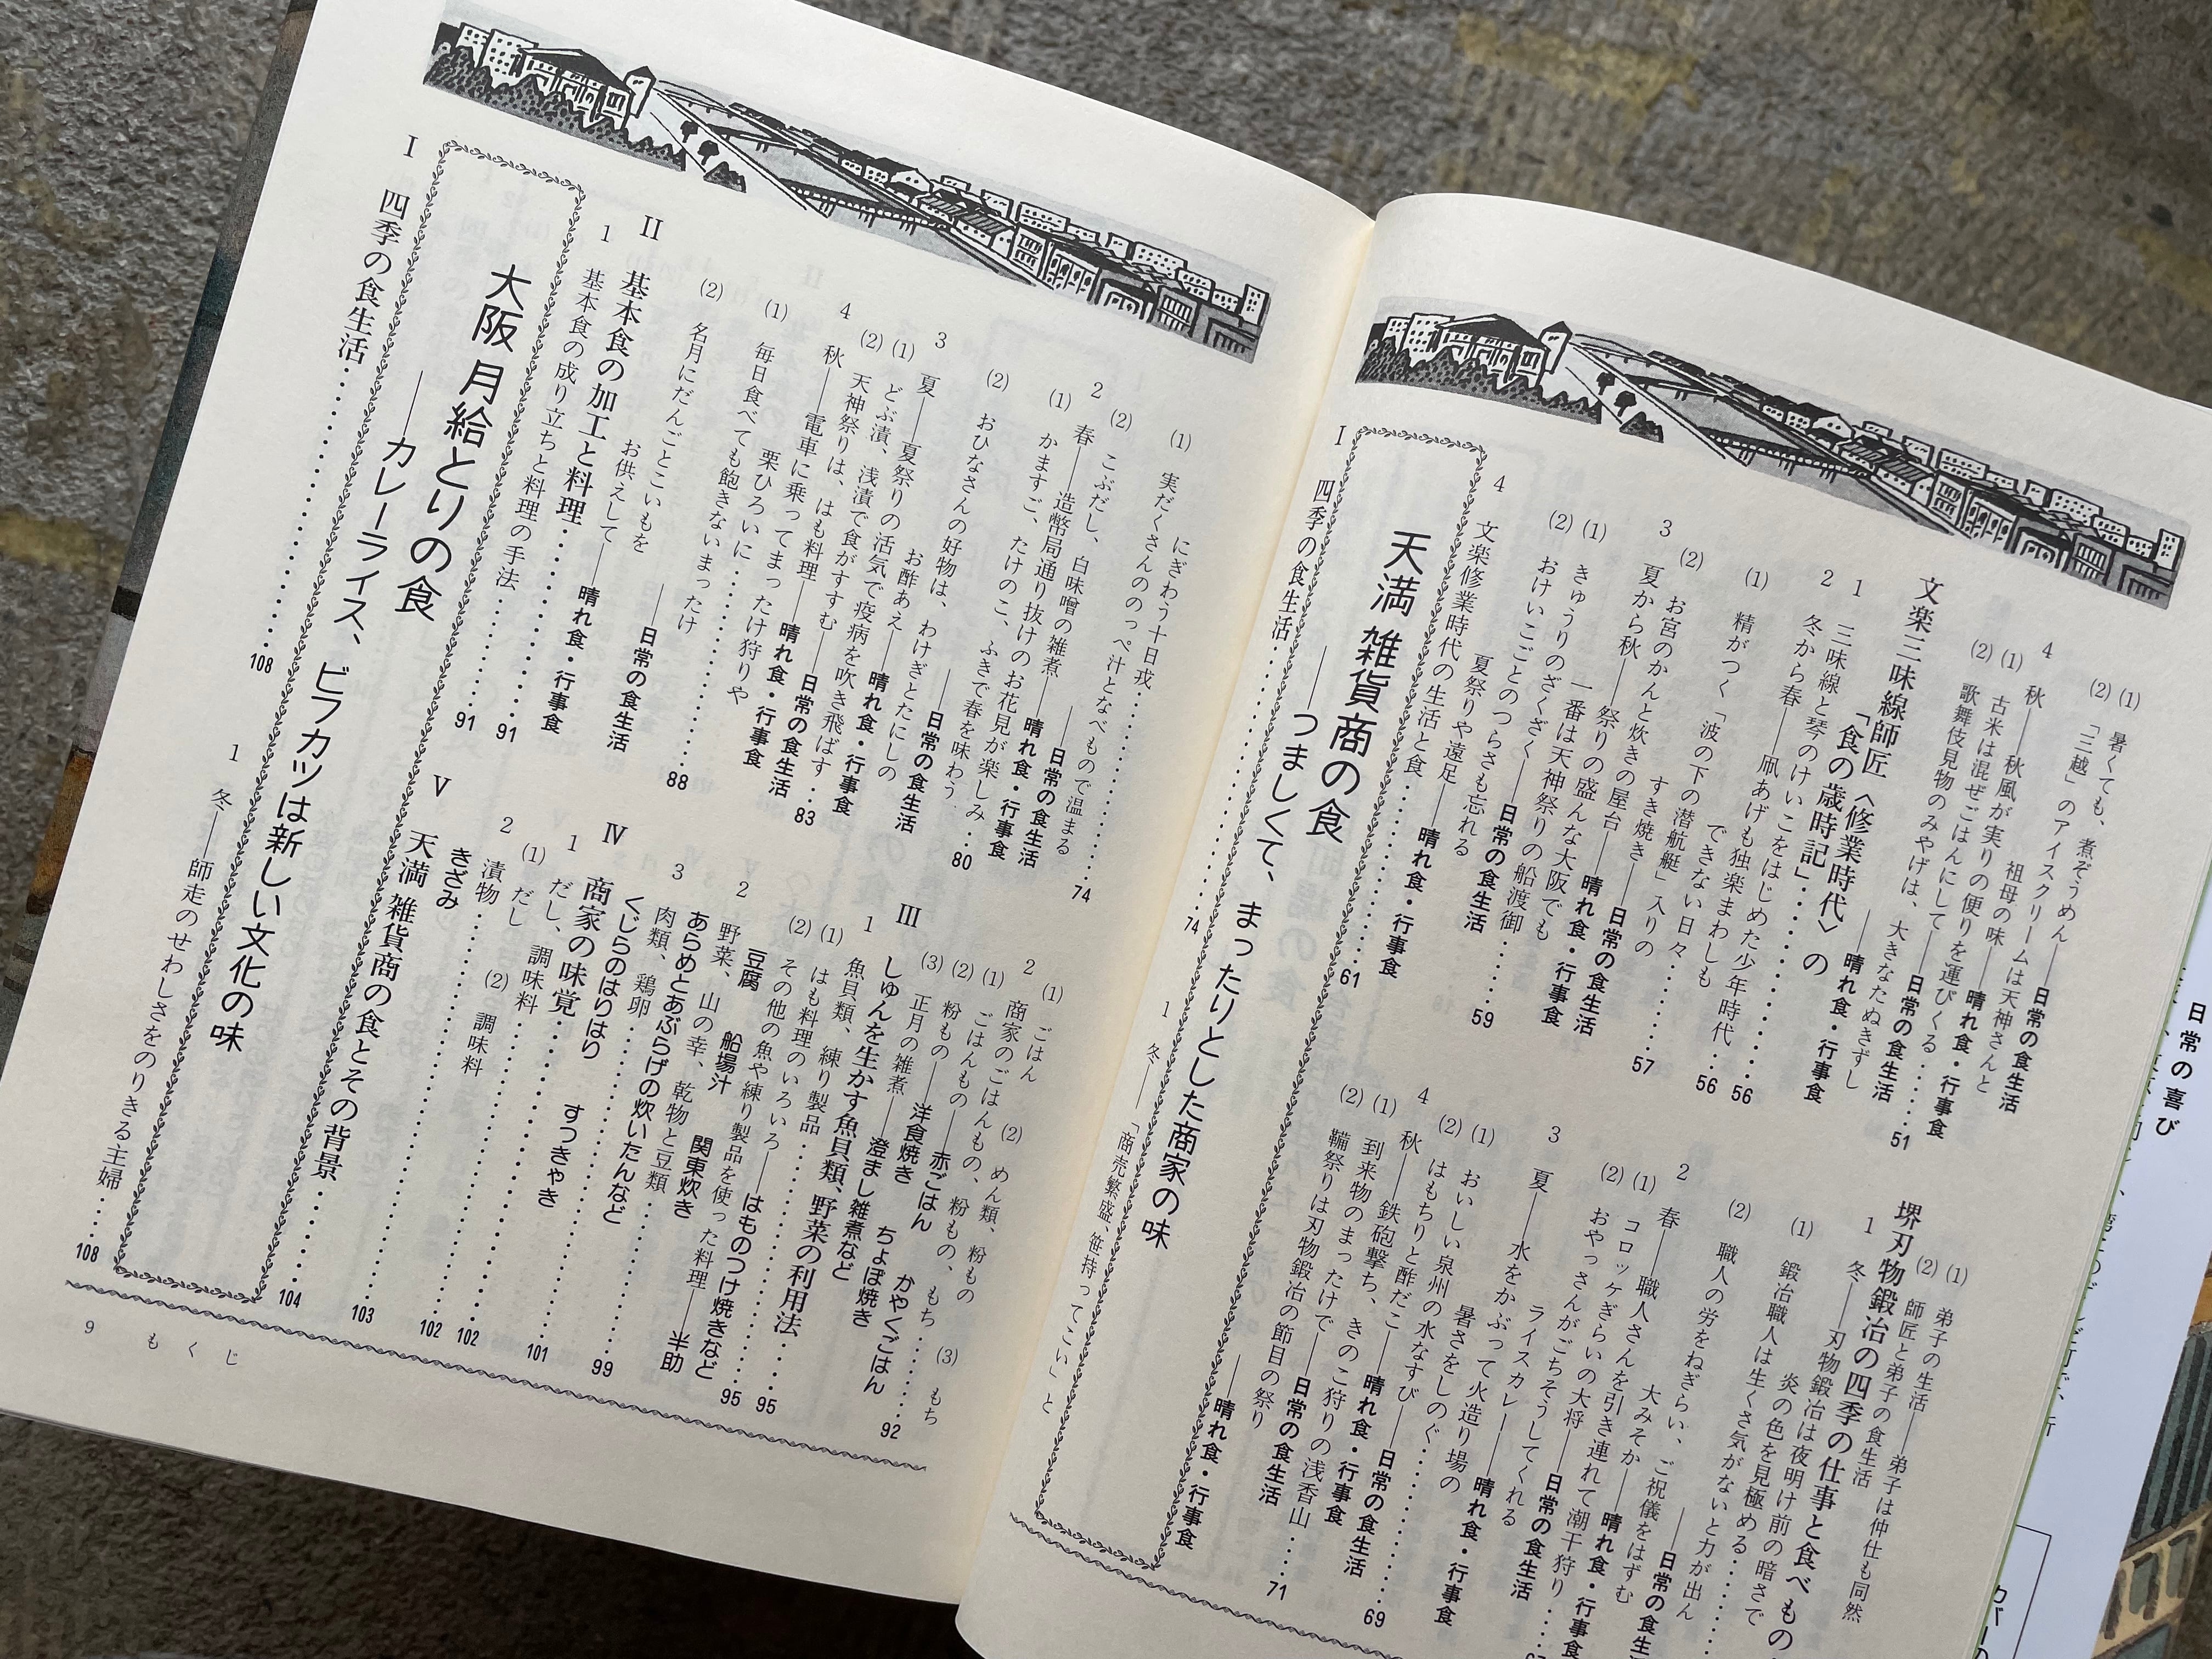 日常の喜び
(1) 暑くても、煮ぞうめん——日常の食生活
(2) 「三越」のアイスクリームは天神さんと
祖母の味——晴れ食・行事食
4 秋——秋風が実りの便りを運びくる………51
(1) 古米は混ぜごはんにして——日常の食生活
(2) 歌舞伎見物のみやげは、大きなたぬきずし
——晴れ食・行事食
文楽三味線師匠〈修業時代〉の
「食の歳時記」………56
1 三味線と琴のけいこをはじめた少年時代…56
2 冬から春——凧あげも独楽まわしも
できない日々………57
(1) 精がつく「波の下の潜航艇」入りの
すき焼き——日常の食生活
(2) お宮のかんと炊きの屋台——晴れ食・行事食
3 夏から秋——祭りの盛んな大阪でも
一番は天神祭りの船渡御………59
(1) きゅうりのざくざく——日常の食生活
(2) おけいこごとのつらさも忘れる
夏祭りや遠足——晴れ食・行事食
4 文楽修業時代の生活と食………61
(1) 弟子の生活——弟子は仲仕も同然
(2) 師匠と弟子の食生活
堺刃物鍛冶の四季の仕事と食べもの
1 冬——刃物鍛冶は夜明け前の暗さで
炎の色を見極める………
(1) 鍛冶職人は生ぐさ気がないと力が出ん
——日常の食生
(2) 職人の労をねぎらい、ご祝儀をはずむ
大みそか——晴れ食・行事食
2 春——職人さんを引き連れて潮干狩り……
(1) コロッケぎらいの大将——日常の食生活
(2) おやっさんがごちそうしてくれる
ライスカレー——晴れ食・行事食
3 夏——水をかぶって火造り場の
暑さをしのぐ………69
(1) おいしい泉州の水なすび——日常の食生活
(2) はもちりと酢だこ——晴れ食・行事食
4 秋——鉄砲撃ち、きのこ狩りの浅香山……71
(1) 到来物のまったけで——日常の食生活
(2) 鞴祭りは刃物鍛冶の節目の祭り
——晴れ食・行事食
天満 雑貨商の食
——つましくて、まったりとした商家の味
I 四季の食生活………74
1 冬——「商売繁盛、笹持ってこい」と
にぎわう十日戎………74
(1) 実だくさんののっぺ汁となべもので温まる
——日常の食生活
(2) こぶだし、白味噌の雑煮——晴れ食・行事食
2 春——造幣局通り抜けのお花見が楽しみ…80
(1) かますご、たけのこ、ふきで春を味わう
——日常の食生活
(2) おひなさんの好物は、わけぎとたにしの
お酢あえ——晴れ食・行事食
3 夏——夏祭りの活気で疫病を吹き飛ばす…83
(1) どぶ漬、浅漬で食がすすむ——日常の食生活
(2) 天神祭りは、はも料理——晴れ食・行事食
4 秋——電車に乗ってまったけ狩りや
栗ひろいに………88
(1) 毎日食べても飽きないまったけ
——日常の食生活
(2) 名月にだんごとこいもを
お供えして——晴れ食・行事食
II 基本食の加工と料理………91
1 基本食の成り立ちと料理の手法………91
(1) ごはん (2) めん類、粉もの (3) もち
2 商家のごはんもの、粉もの、もち………92
(1) ごはんもの——赤ごはん かやくごはん
(2) 粉もの——洋食焼き ちょぼ焼き
(3) 正月の雑煮——澄まし雑煮など
III しゅんを生かす魚貝類、野菜の利用法……95
1 魚貝類、練り製品………95
(1) はも料理のいろいろ——はものつけ焼きなど
(2) その他の魚や練り製品を使った料理——半助
豆腐 船場汁 関東炊き
2 野菜、山の幸、乾物と豆類………99
あらめとあぶらげの炊いたんなど
3 肉類、鶏卵………101
くじらのはりはり すつきゃき
IV 商家の味覚………102
1 だし、調味料………102
(1) だし (2) 調味料
2 漬物………103
きざみ
V 天満 雑貨商の食とその背景………104
大阪 月給とりの食
——カレーライス、ビフカツは新しい文化の味
I 四季の食生活………108
1 冬——師走のせわしさをのりきる主婦……108
9 もくじ